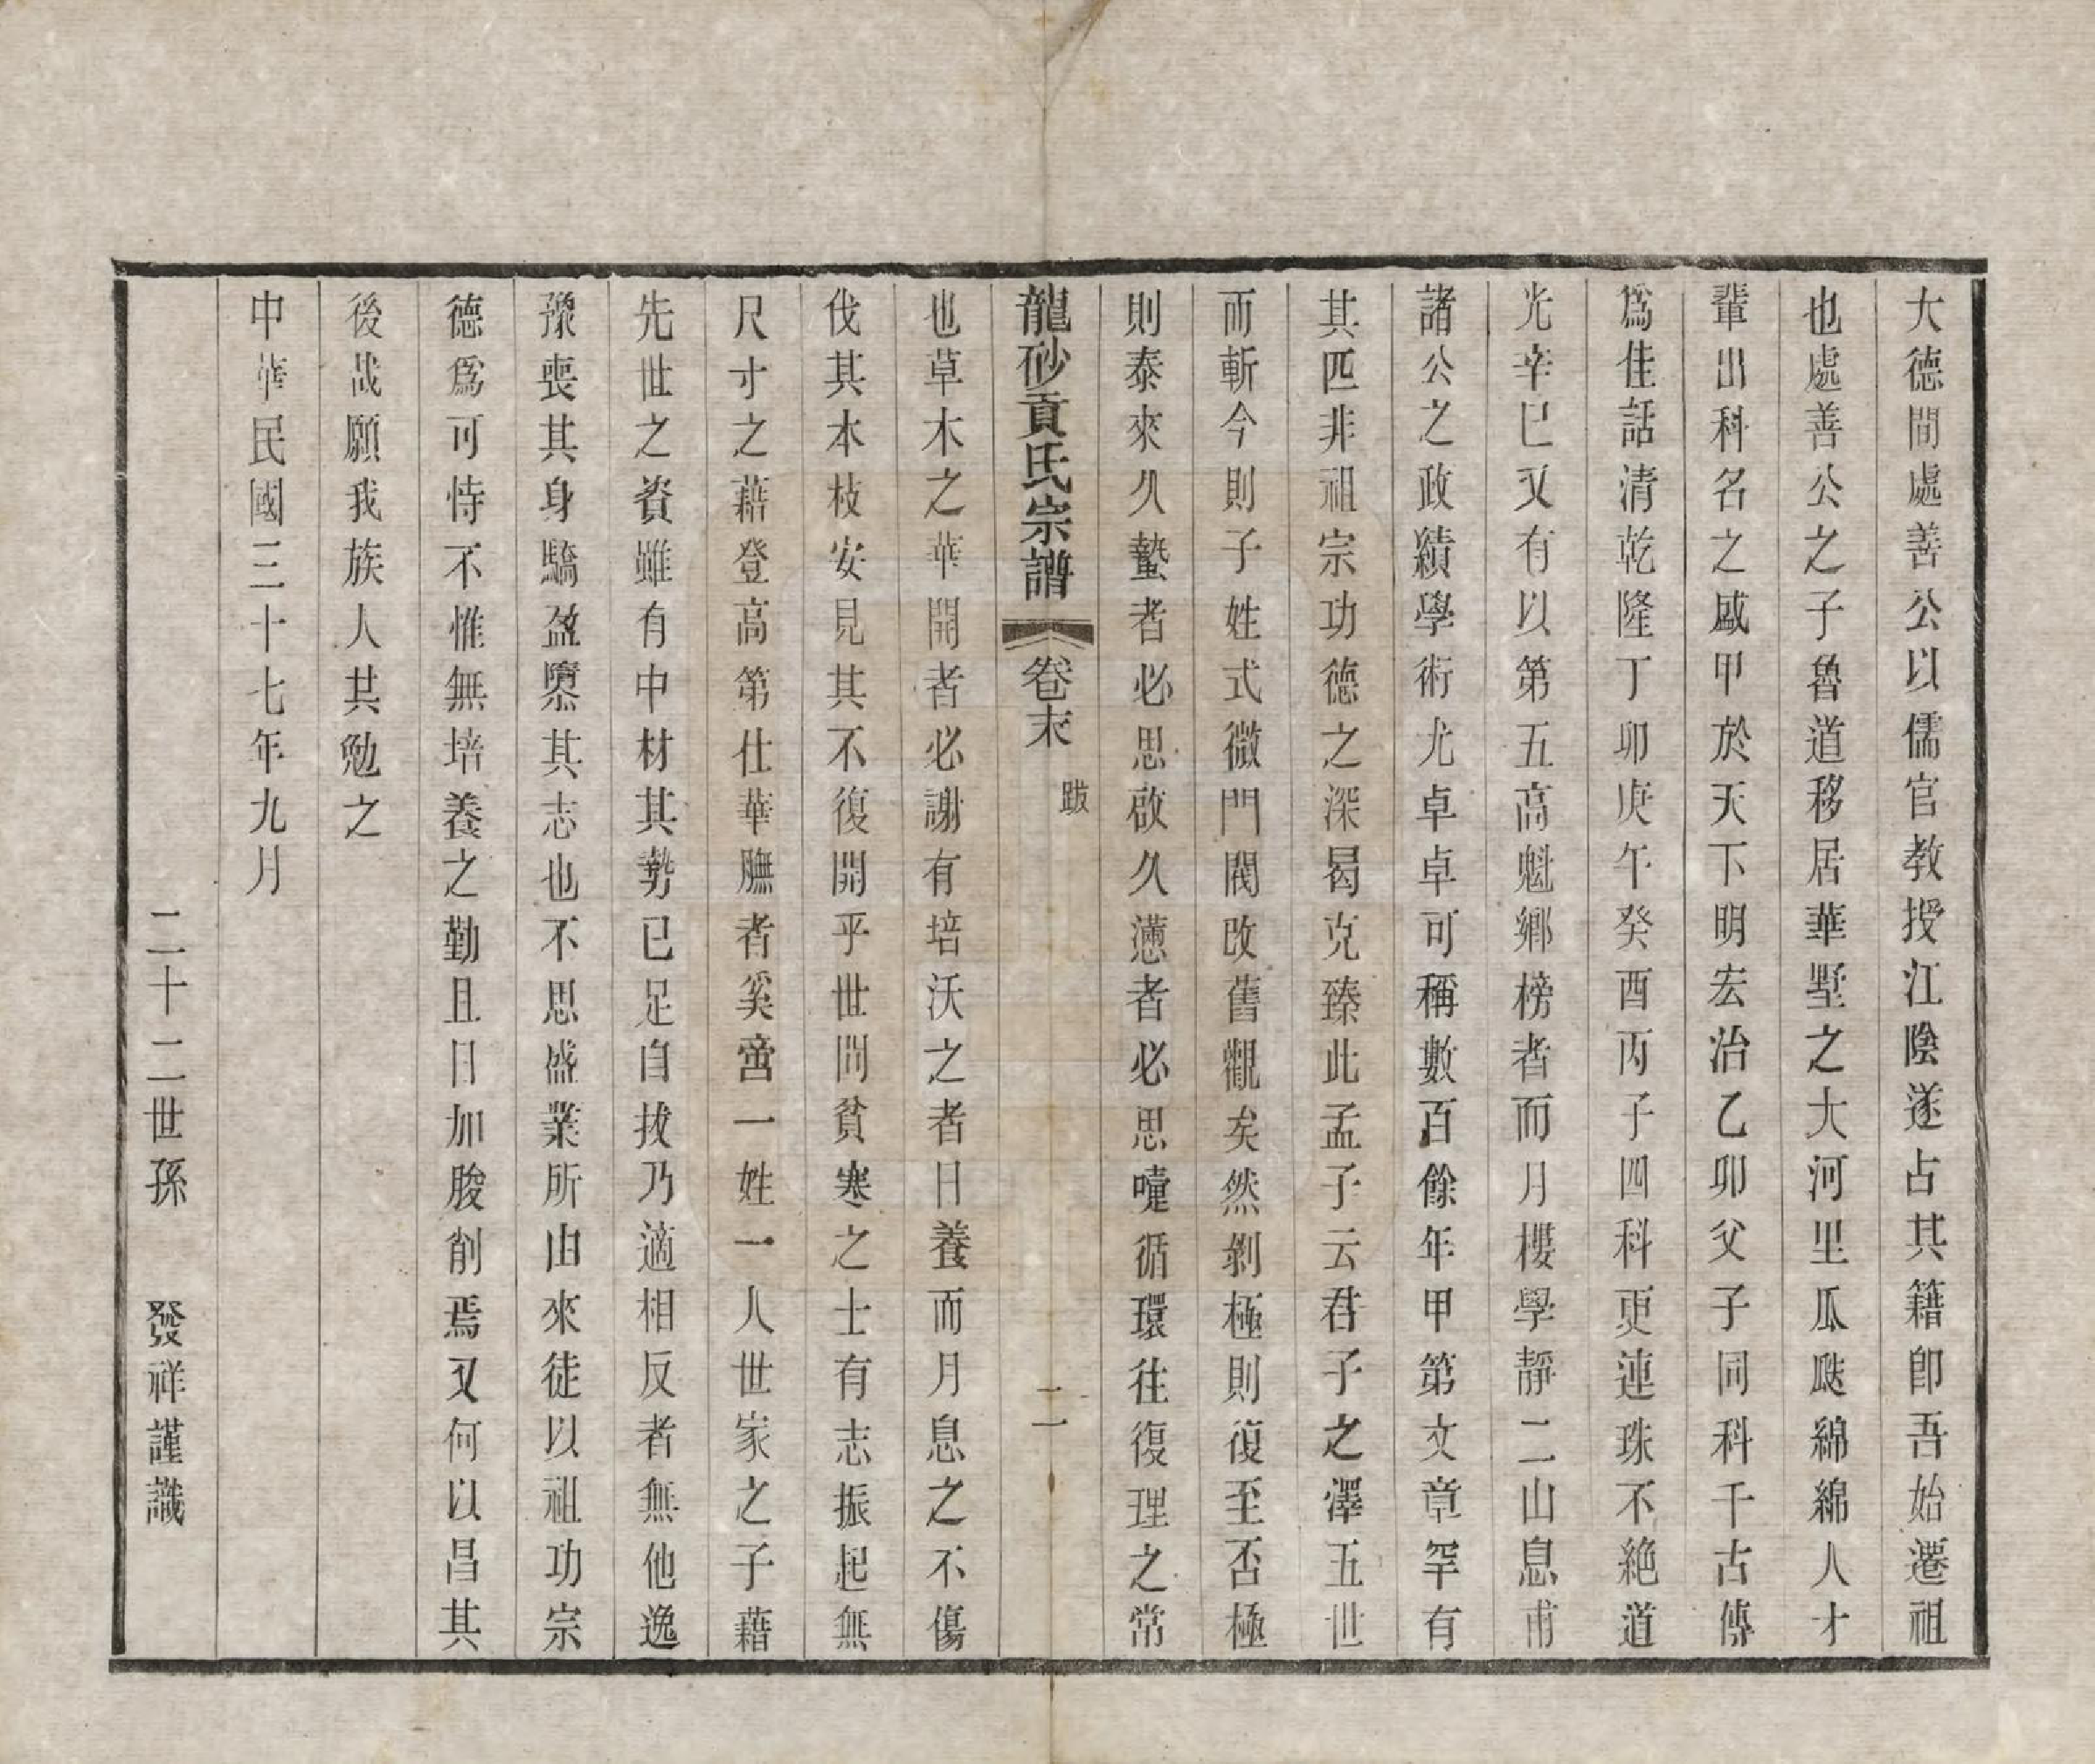 大德間處善公以儒官教授江陰遂占其籍卽吾始遷祖
也處善公之子魯道移居華墅之大河里瓜瓞綿綿人才
輩出科名之盛甲於天下明宏治乙卯父子同科千古傳
爲佳話清乾隆丁卯庚午癸酉丙子四科更連珠不絕道
光辛巳又有以第五高魁鄉榜者而月樓學靜二山息甫
諸公之政績學術尤卓卓可稱數百餘年甲第文章罕有
其匹非祖宗功德之深曷克臻此孟子云君子之澤五世
而斬今則子姓式微門閥改舊觀矣然剝極則復至否極
則泰來久蟄者必思啟久懑者必思嚏循環往復理之常
龍砂貢氏宗譜 卷末 跋 二
也草木之華開者必謝有培沃之者日養而月息之不傷
伐其本枝安見其不復開乎世間貧寒之士有志振起無
尺寸之藉登高第仕華膴者奚啻一姓一人世家之子藉
先世之資雖有中材其勢已足自拔乃適相反者無他逸
豫喪其身驕盈隳其志也不思盛業所由來徒以祖功宗
德爲可恃不惟無培養之勤且日加朘削焉又何以昌其
後哉願我族人其勉之
中華民國三十七年九月
二十二世孫 發祥謹識